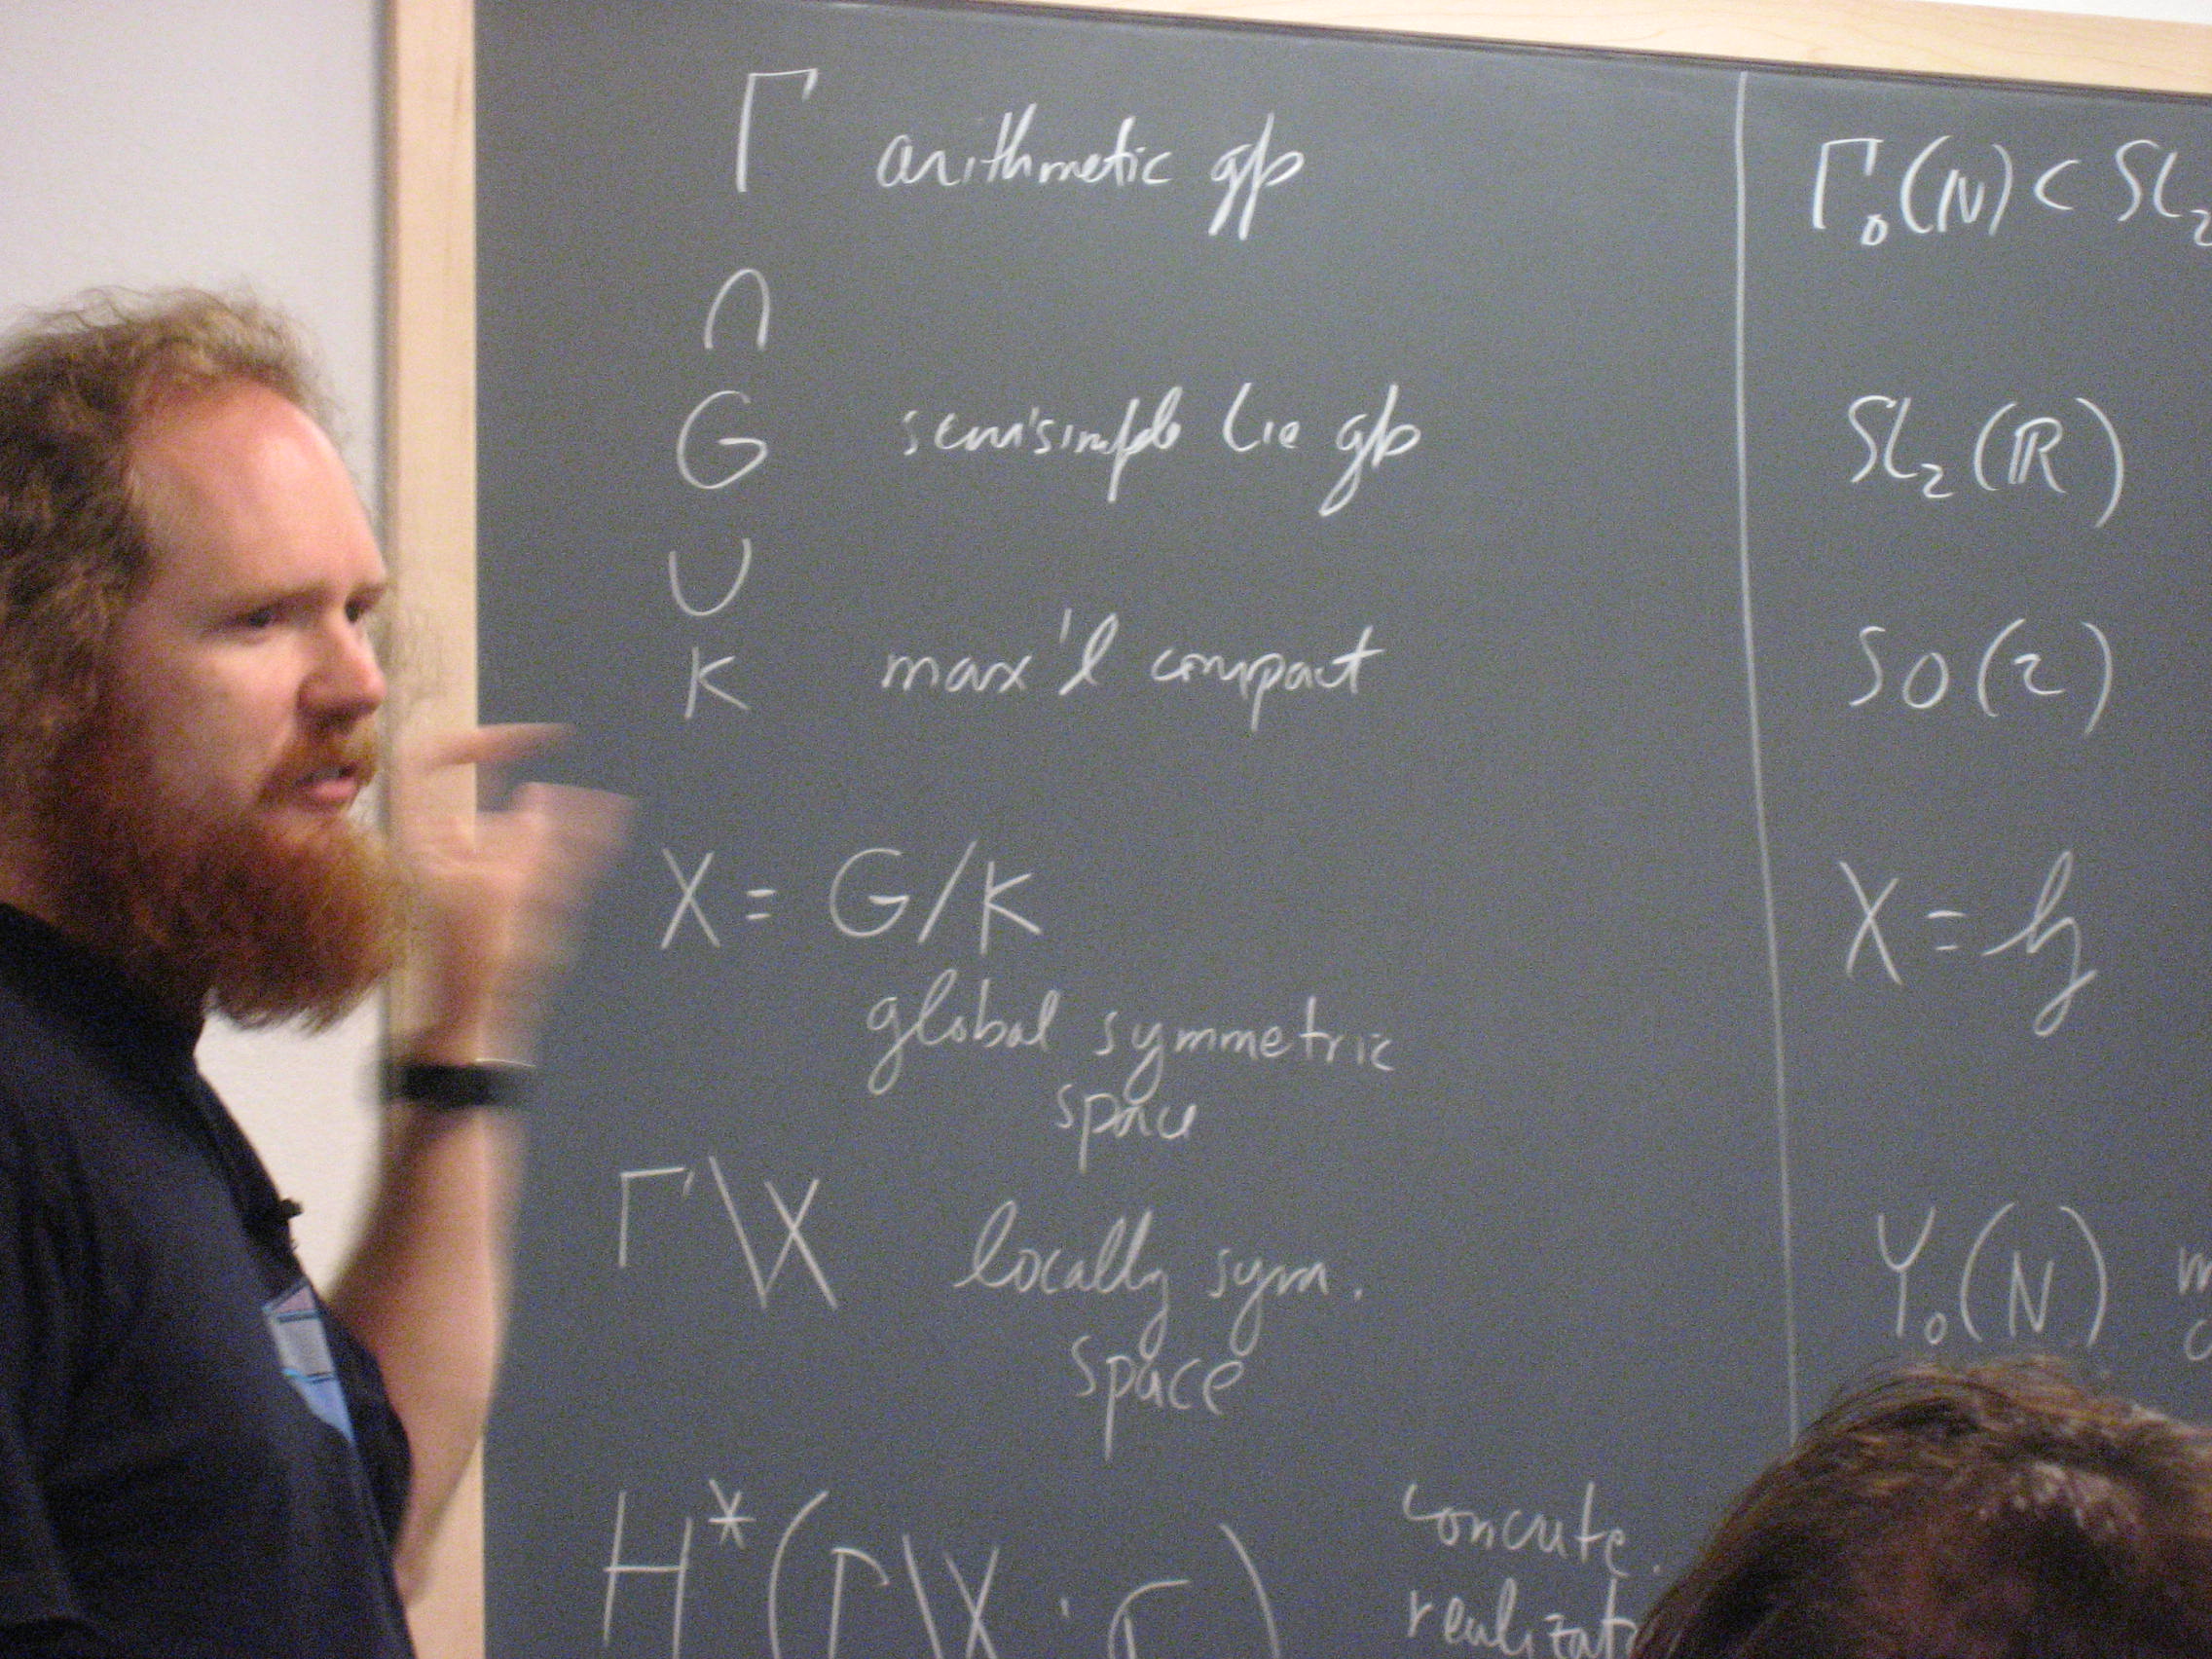 Γ arithmetic gp
∩
G semisimple Lie gp
∪
K max'l compact
X = G/K
global symmetric
space
Γ\X locally sym.
space
H*(Γ\X;
concrete
Γ₀(N) < SL₂
SL₂(ℝ)
SO(2)
X = 𝔥
Y₀(N)